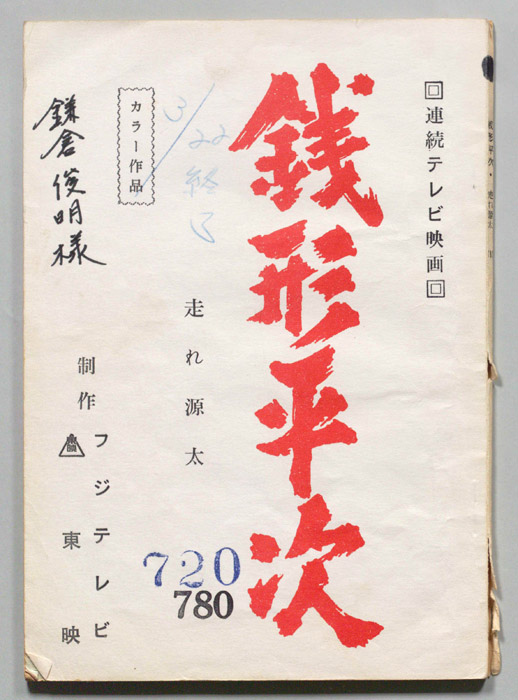 回連続テレビ映画回
銭形平次
走れ源太
カラー作品
3/22終了
鎌倉俊明様
制作
フジテレビ
東映
720
780